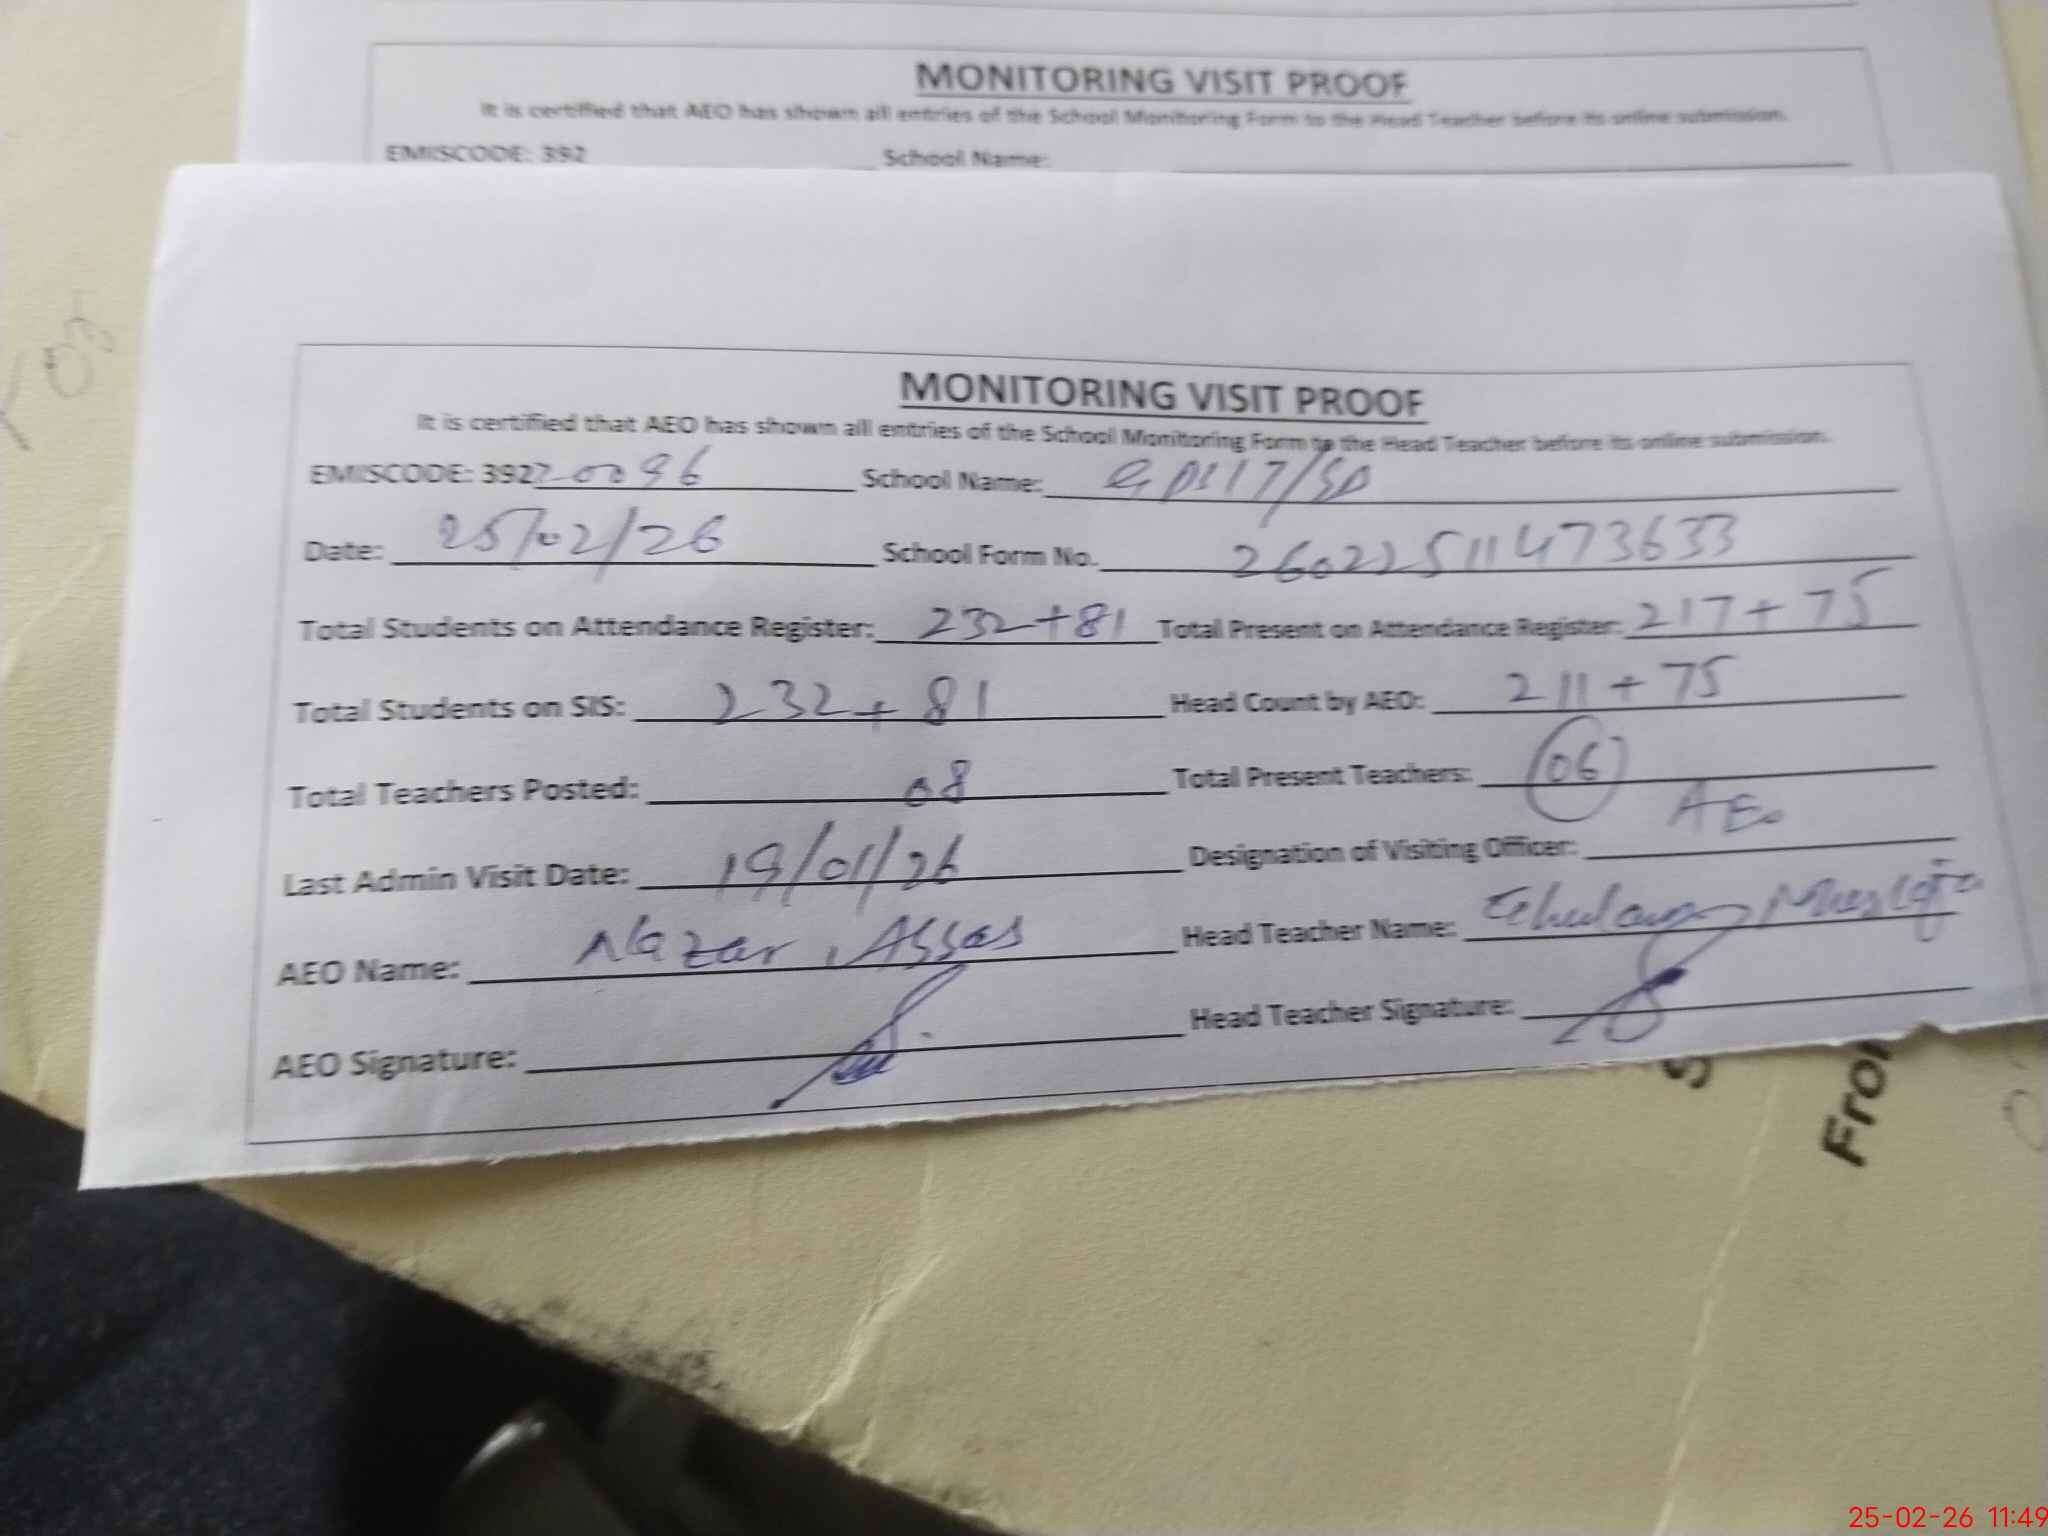 MONITORING VISIT PROOF
It is certified that AEO has shown all entries of the School Monitoring Form to the Head Teacher before its online submission.
EMISCODE: 392 School Name:
MONITORING VISIT PROOF
It is certified that AEO has shown all entries of the School Monitoring Form to the Head Teacher before its online submission.
EMISCODE: 39220096 School Name: GPS 17/SP
Date: 25/02/26 School Form No. 26022511473633
Total Students on Attendance Register: 232+81 Total Present on Attendance Register: 217+75
Total Students on SIS: 232+81 Head Count by AEO: 211+75
Total Teachers Posted: 08 Total Present Teachers: 06
Last Admin Visit Date: 19/01/26 Designation of Visiting Officer: AEO
AEO Name: Nazar Abbas Head Teacher Name: Ghulam Mustafa
AEO Signature: Head Teacher Signature:
Fro
25-02-26 11:49